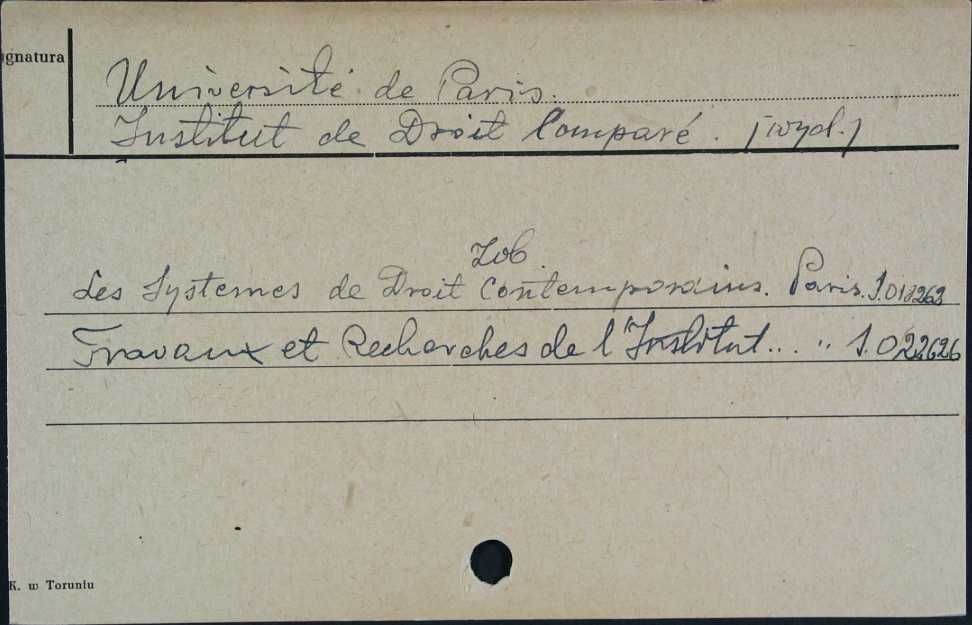 ignatura
Université de Paris.
Institut de Droit Comparé. [wyd.]
Zob.
Les Systemes de Droit Contemporains. Paris. S.018263
Travaux et Recherches de l'Institut... " S.022626
K. w Toruniu